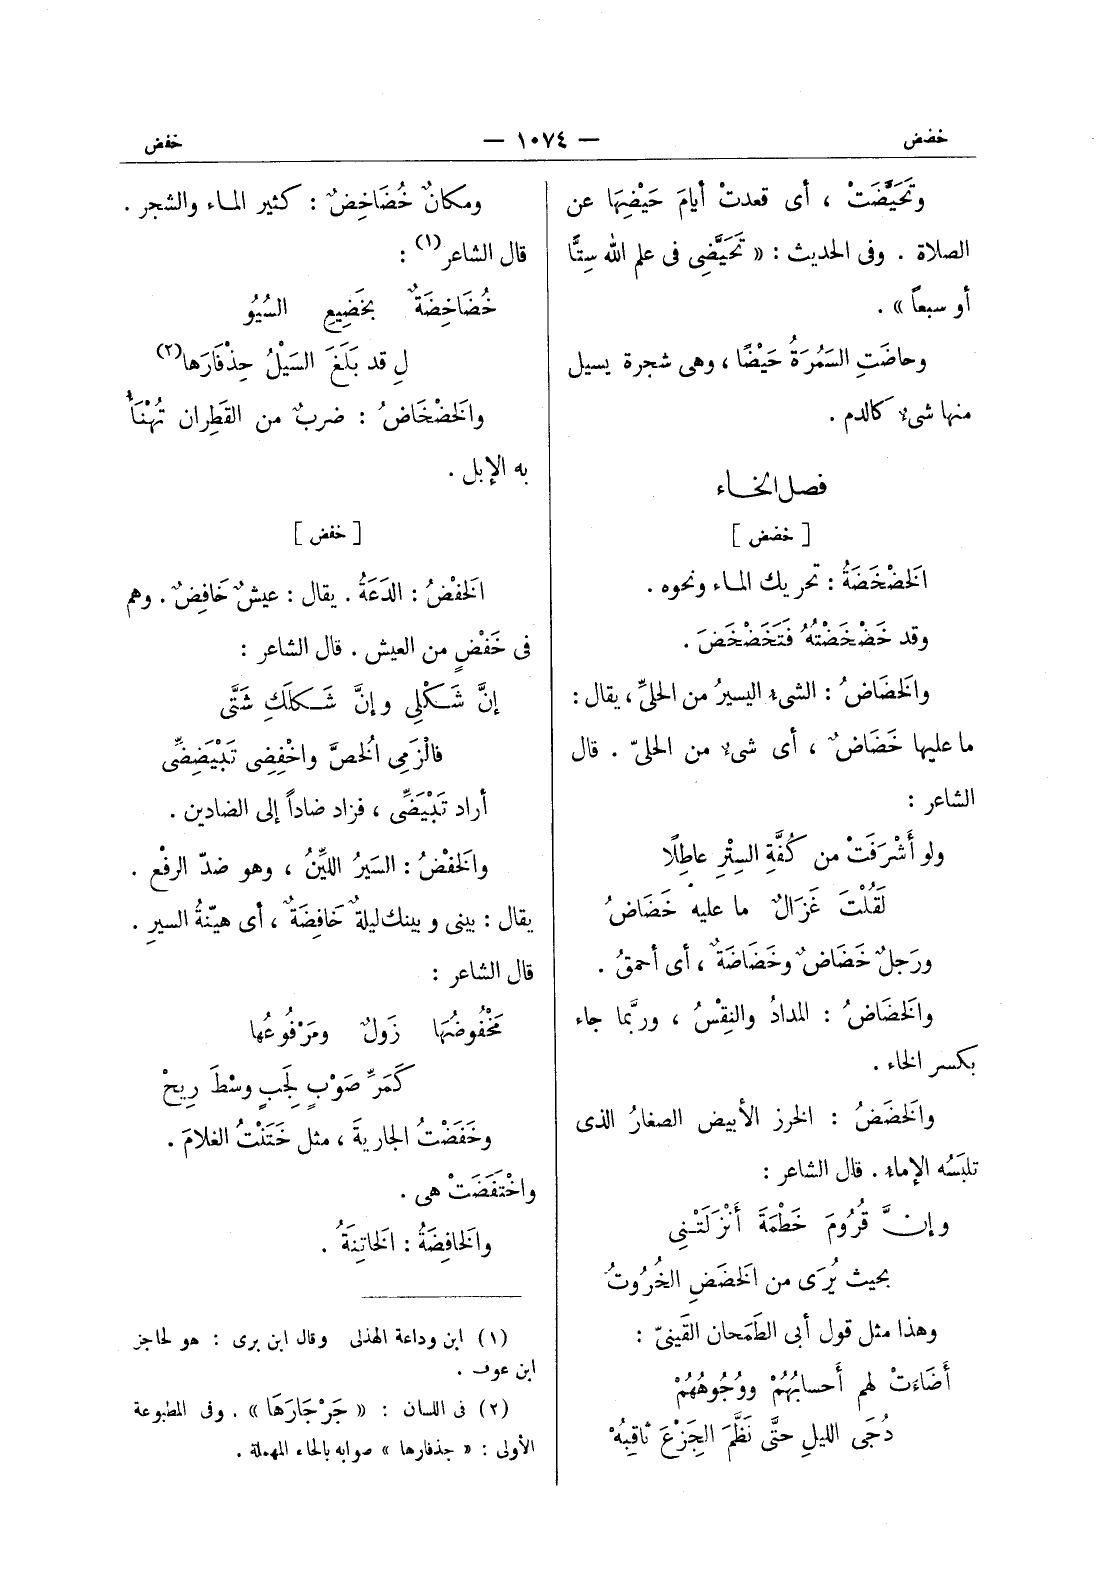 خضض — ١٠٧٤ — خفض
وتَحَيَّضَتْ ، أى قعدتْ أيامَ حَيْضِهَا عن
الصلاة . وفى الحديث : « تَحَيَّضِى فى علم الله سِتًّا
أو سبعاً » .
وحاضَتِ السَمُرَةُ حَيْضًا ، وهى شجرة يسيل
منها شىء كالدم .
فصل الخاء
[ خضض ]
الخَضْخَضَةُ : تحريك الماء ونحوه .
وقد خَضْخَضْتُهُ فَتَخَضْخَضَ .
والخَضَاضُ : الشىء اليسيرُ من الحلىِّ ، يقال :
ما عليها خَضَاضٌ ، أى شىء من الحلىّ . قال
الشاعر :
ولو أَشْرَفَتْ من كُفَّةِ السِتْرِ عاطِلًا
لَقُلْتَ غَزَالٌ ما عليه خَضَاضُ
ورَجلٌ خَضَاضٌ وخَضَاضَةٌ ، أى أحمقُ .
والخَضَاضُ : المدادُ والنِقْسُ ، وربَّما جاء
بكسر الخاء .
والخَضَضُ : الخرز الأبيض الصغارُ الذى
تلبَسُه الإماء . قال الشاعر :
وإنَّ قُرُومَ خَطْمَةَ أَنْزَلَتْنِى
بحيث يُرَى من الخَضَضِ الخُرُوتُ
وهذا مثل قول أبى الطَمَحان القَينىّ :
أَضَاءَتْ لهم أَحسابُهُمْ ووُجُوهُهُمْ
دُجَى الليلِ حتَّى نَظَّمَ الجِزْعَ ثاقِبُهْ
ومكانٌ خُضَاخِضٌ : كثير الماء والشجر .
قال الشاعر(١) :
خُضَاخِضَةٌ بخَضِيعِ السُيُو
لِ قد بَلَغَ السَيْلُ حِذْفَارَها(٢)
والخَضْخَاضُ : ضربٌ من القَطِران تُهْنَأُ
به الإبل .
[ خفض ]
الخَفْضُ : الدَعَةُ . يقال : عيشٌ خَافِضٌ . وهم
فى خَفْضٍ من العيش . قال الشاعر :
إنَّ شَكْلِى وإنَّ شَكلَكِ شَتَّى
فالْزَمِى الخصَّ واخْفِضِى تَبْيَضِضِّى
أراد تَبْيَضِّى ، فزاد ضاداً إلى الضادين .
والخَفْضُ : السَيرُ الليِّنُ ، وهو ضدّ الرفْع .
يقال : بينى وبينك ليلةٌ خَافِضَةٌ ، أى هيّنةُ السيرِ .
قال الشاعر :
مَخْفُوضُهَا زَولٌ ومَرْفُوعُها
كَمَرِّ صَوْبٍ لَجِبٍ وسْطَ رِيحْ
وخَفَضْتُ الجاريةَ ، مثل خَتَنْتُ الغلامَ .
واخْتَفَضَتْ هى .
والخافِضَةُ : الخاتِنَةُ .
(١) ابن وداعة الهذلى وقال ابن برى : هو لحاجز
ابن عوف .
(٢) فى اللسان : « جَرْجَارَهَا » . وفى المطبوعة
الأولى : « جذفارها » صوابه بالحاء المهملة .